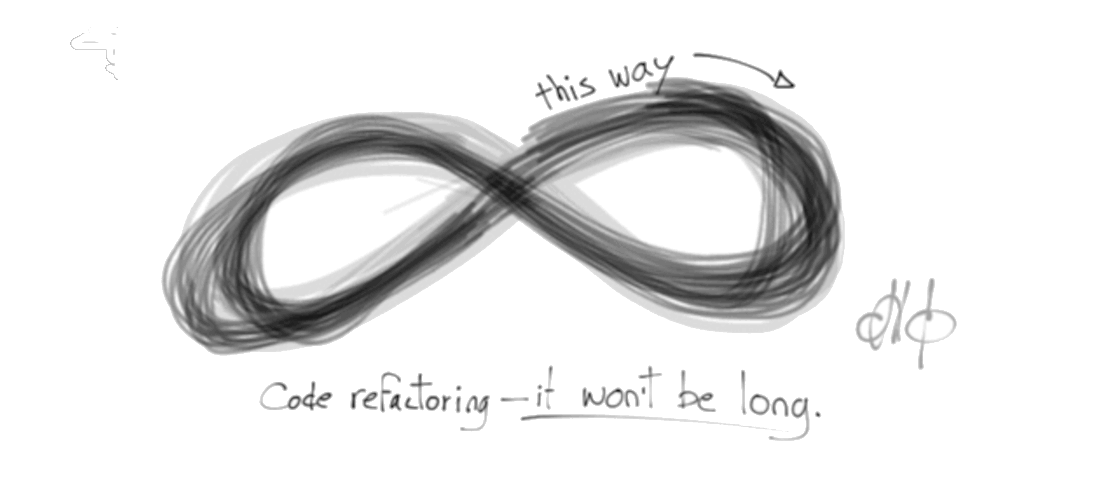 this way
Code refactoring – it won't be long.